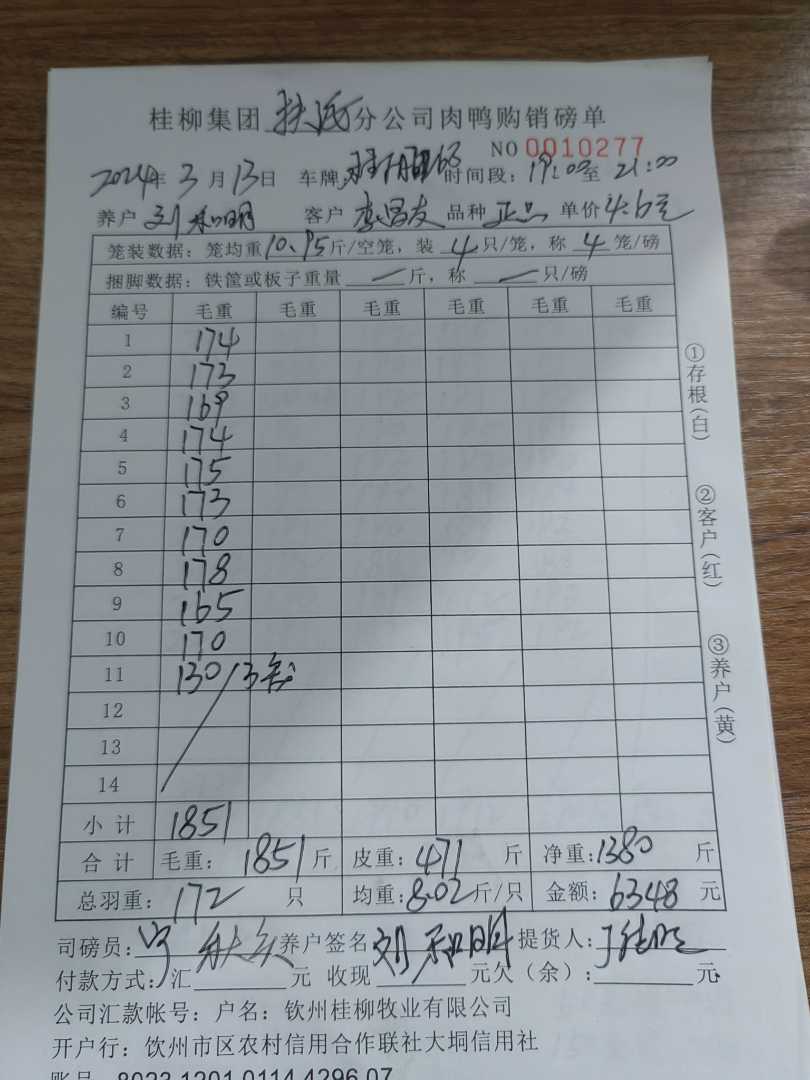 桂柳集团 扶 分公司肉鸭购销磅单
NO 0010277
2024年 3 月 13日 车牌: 时间段: 19:00至 21:00
养户 刘和明 客户 李昌友 品种 正品 单价 4.6元
笼装数据: 笼均重 10.95斤/空笼, 装 4 只/笼, 称 4 笼/磅
捆脚数据: 铁筐或板子重量 — 斤, 称 — 只/磅
编号 毛重 毛重 毛重 毛重 毛重 毛重
1 174
2 173
3 169
4 174
5 175
6 173
7 170
8 178
9 165
10 170
11 130/3笼
12
13
14
小 计 1851
合 计 毛重: 1851 斤 皮重: 471 斤 净重: 1380 斤
总羽重: 172 只 均重: 8.02斤/只 金额: 6348 元
司磅员: 养户签名 刘和明 提货人:
付款方式: 汇 元 收现 元欠（余）: 元
公司汇款帐号: 户名: 钦州桂柳牧业有限公司
开户行: 钦州市区农村信用合作联社大垌信用社
账号 8023 1201 0114 4296 07
①存根(白)
②客户(红)
③养户(黄)